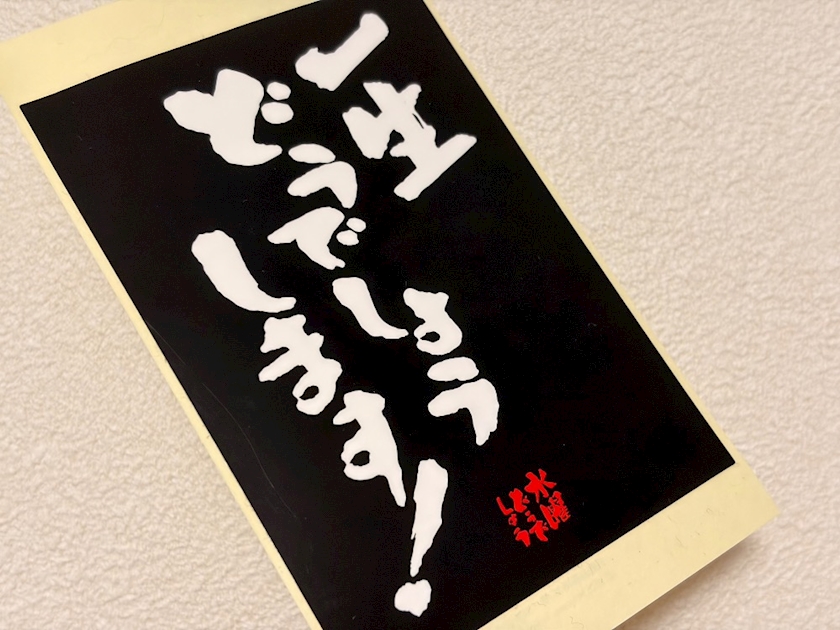 一生
どうでしょう
します!
水曜
どうで
しょう